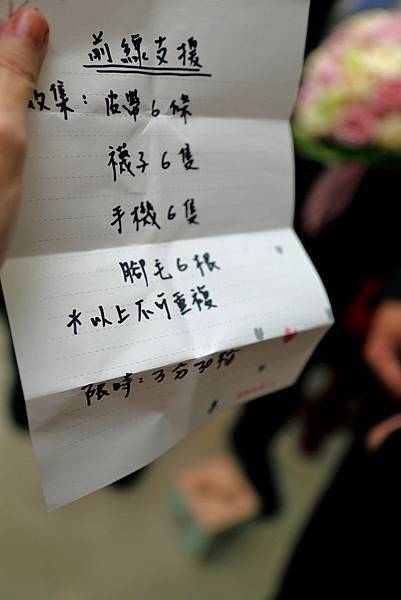 前線支援
收集：皮帶6條
襪子6隻
手機6隻
腳毛6根
*以上不可重複
限時：3分30秒